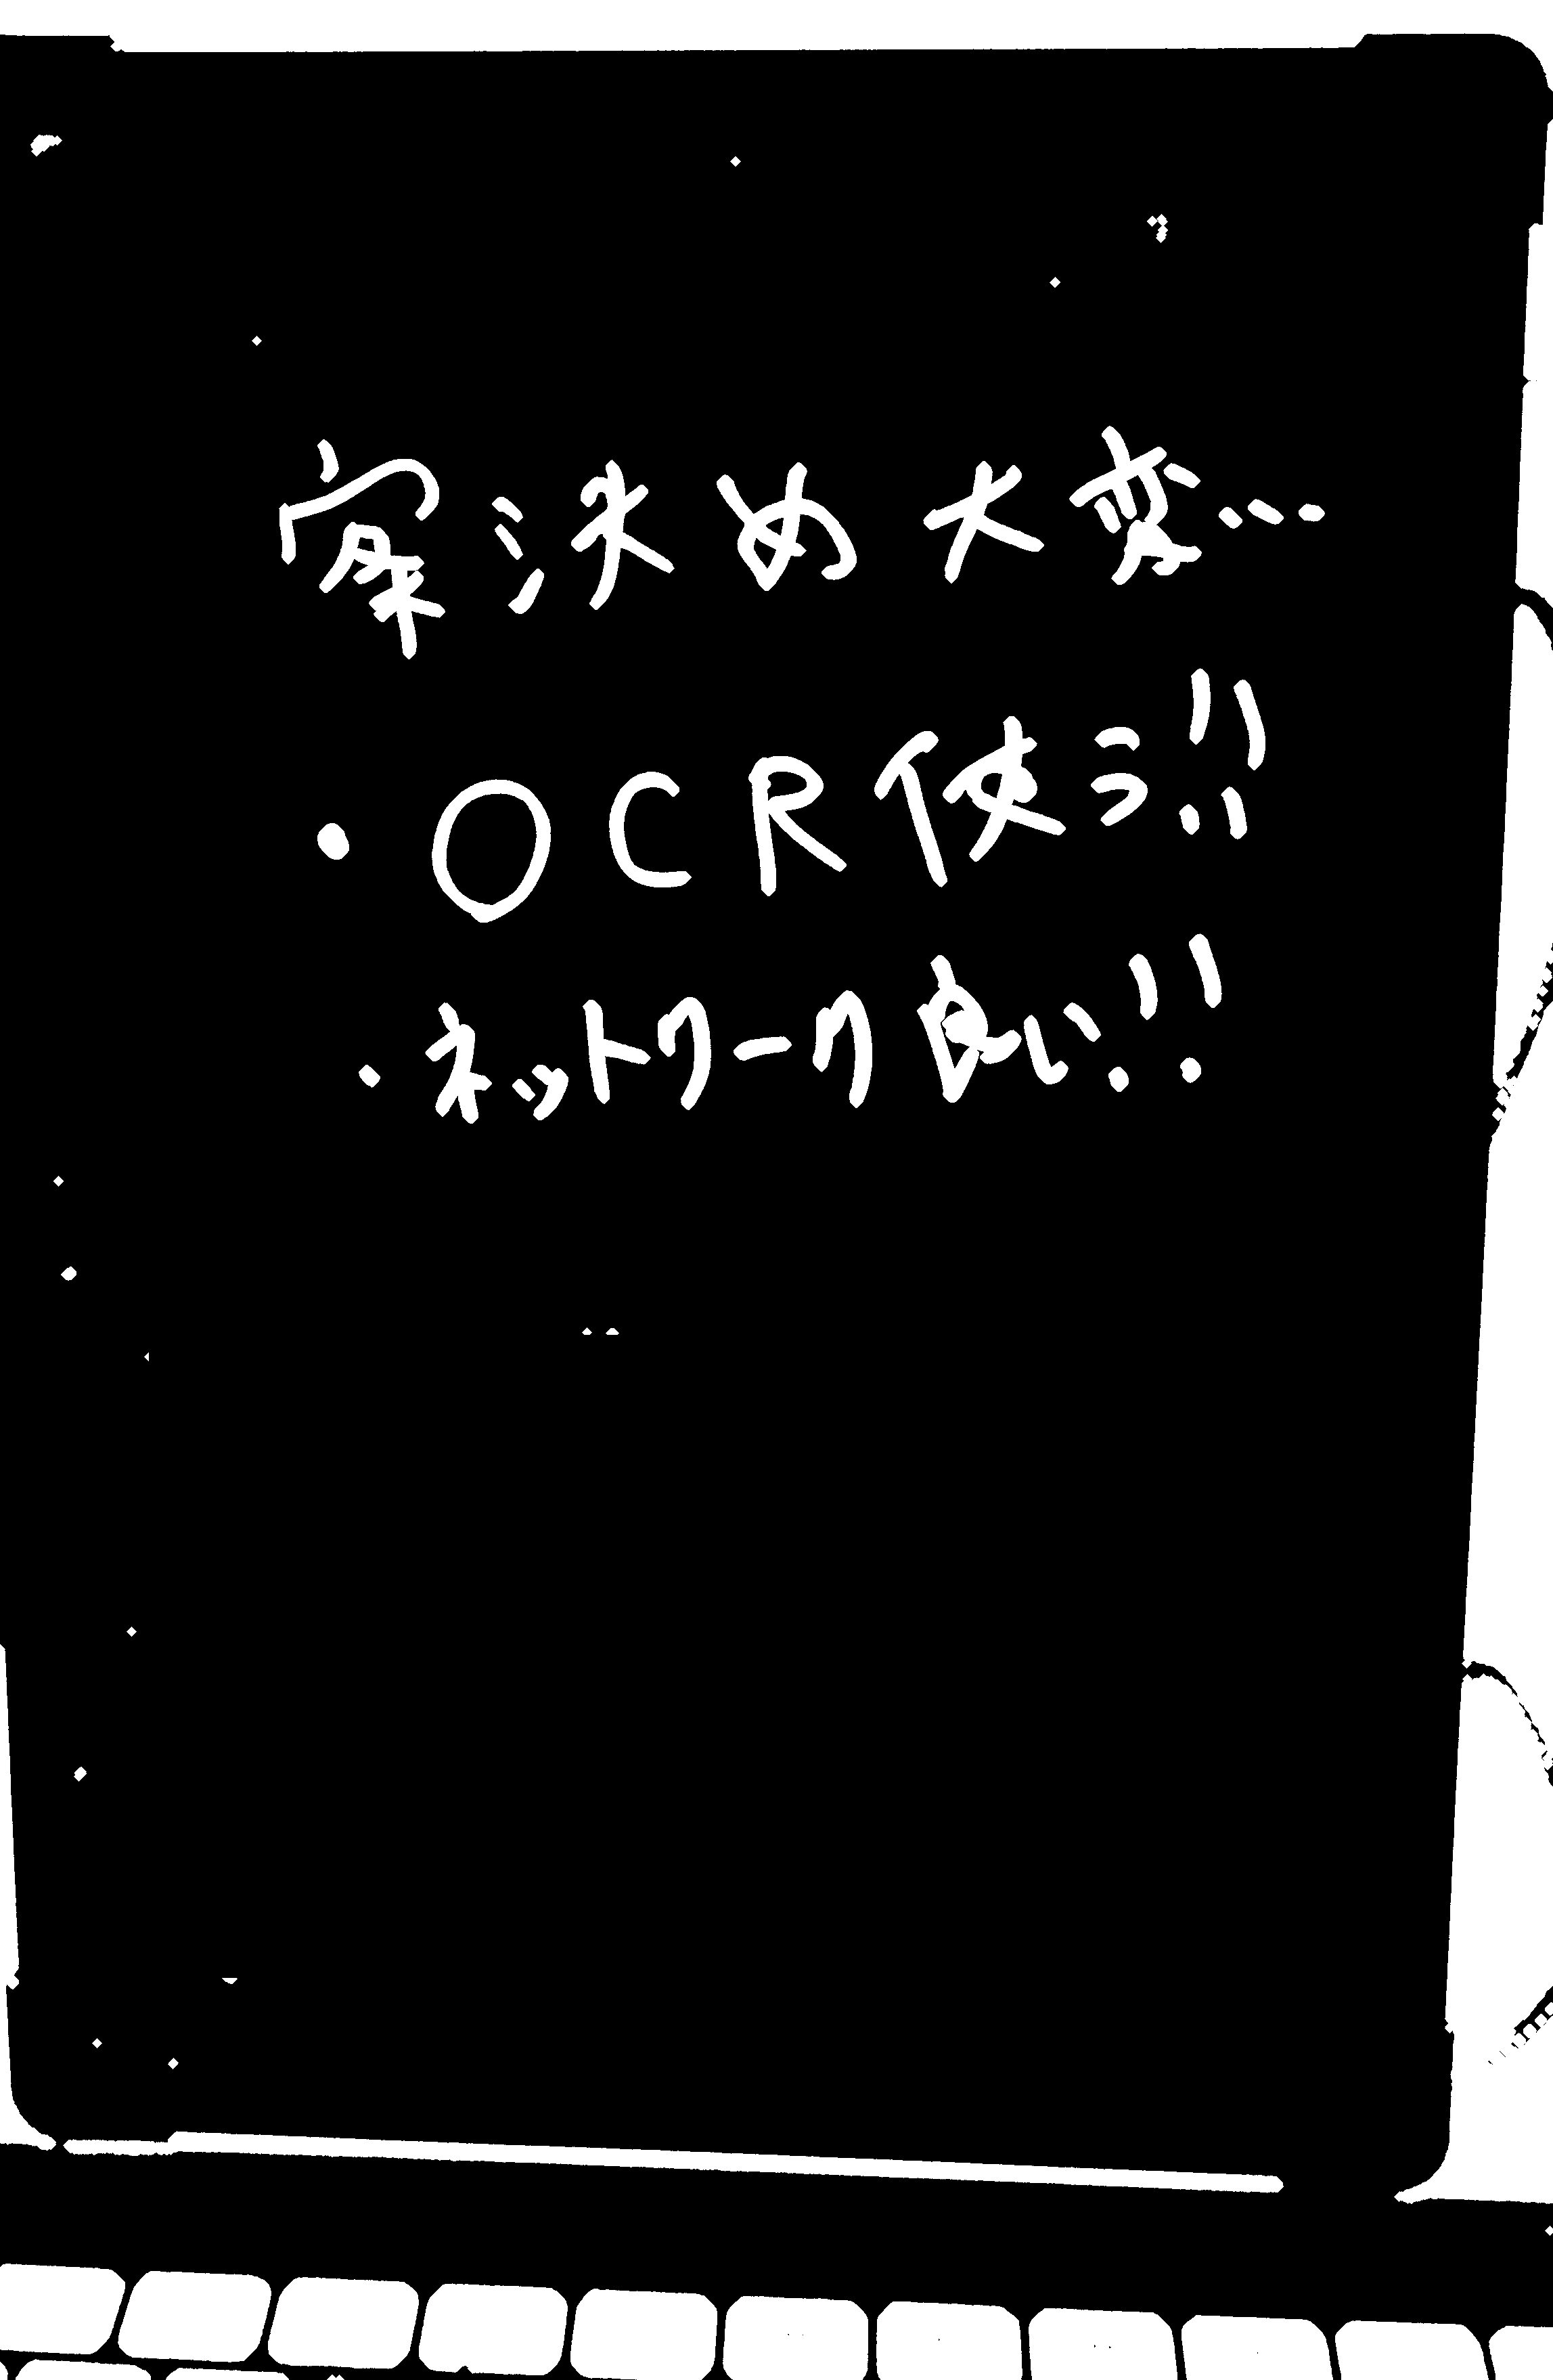 家決め大変…
・OCR使う!!
・ネットワーク良い!!